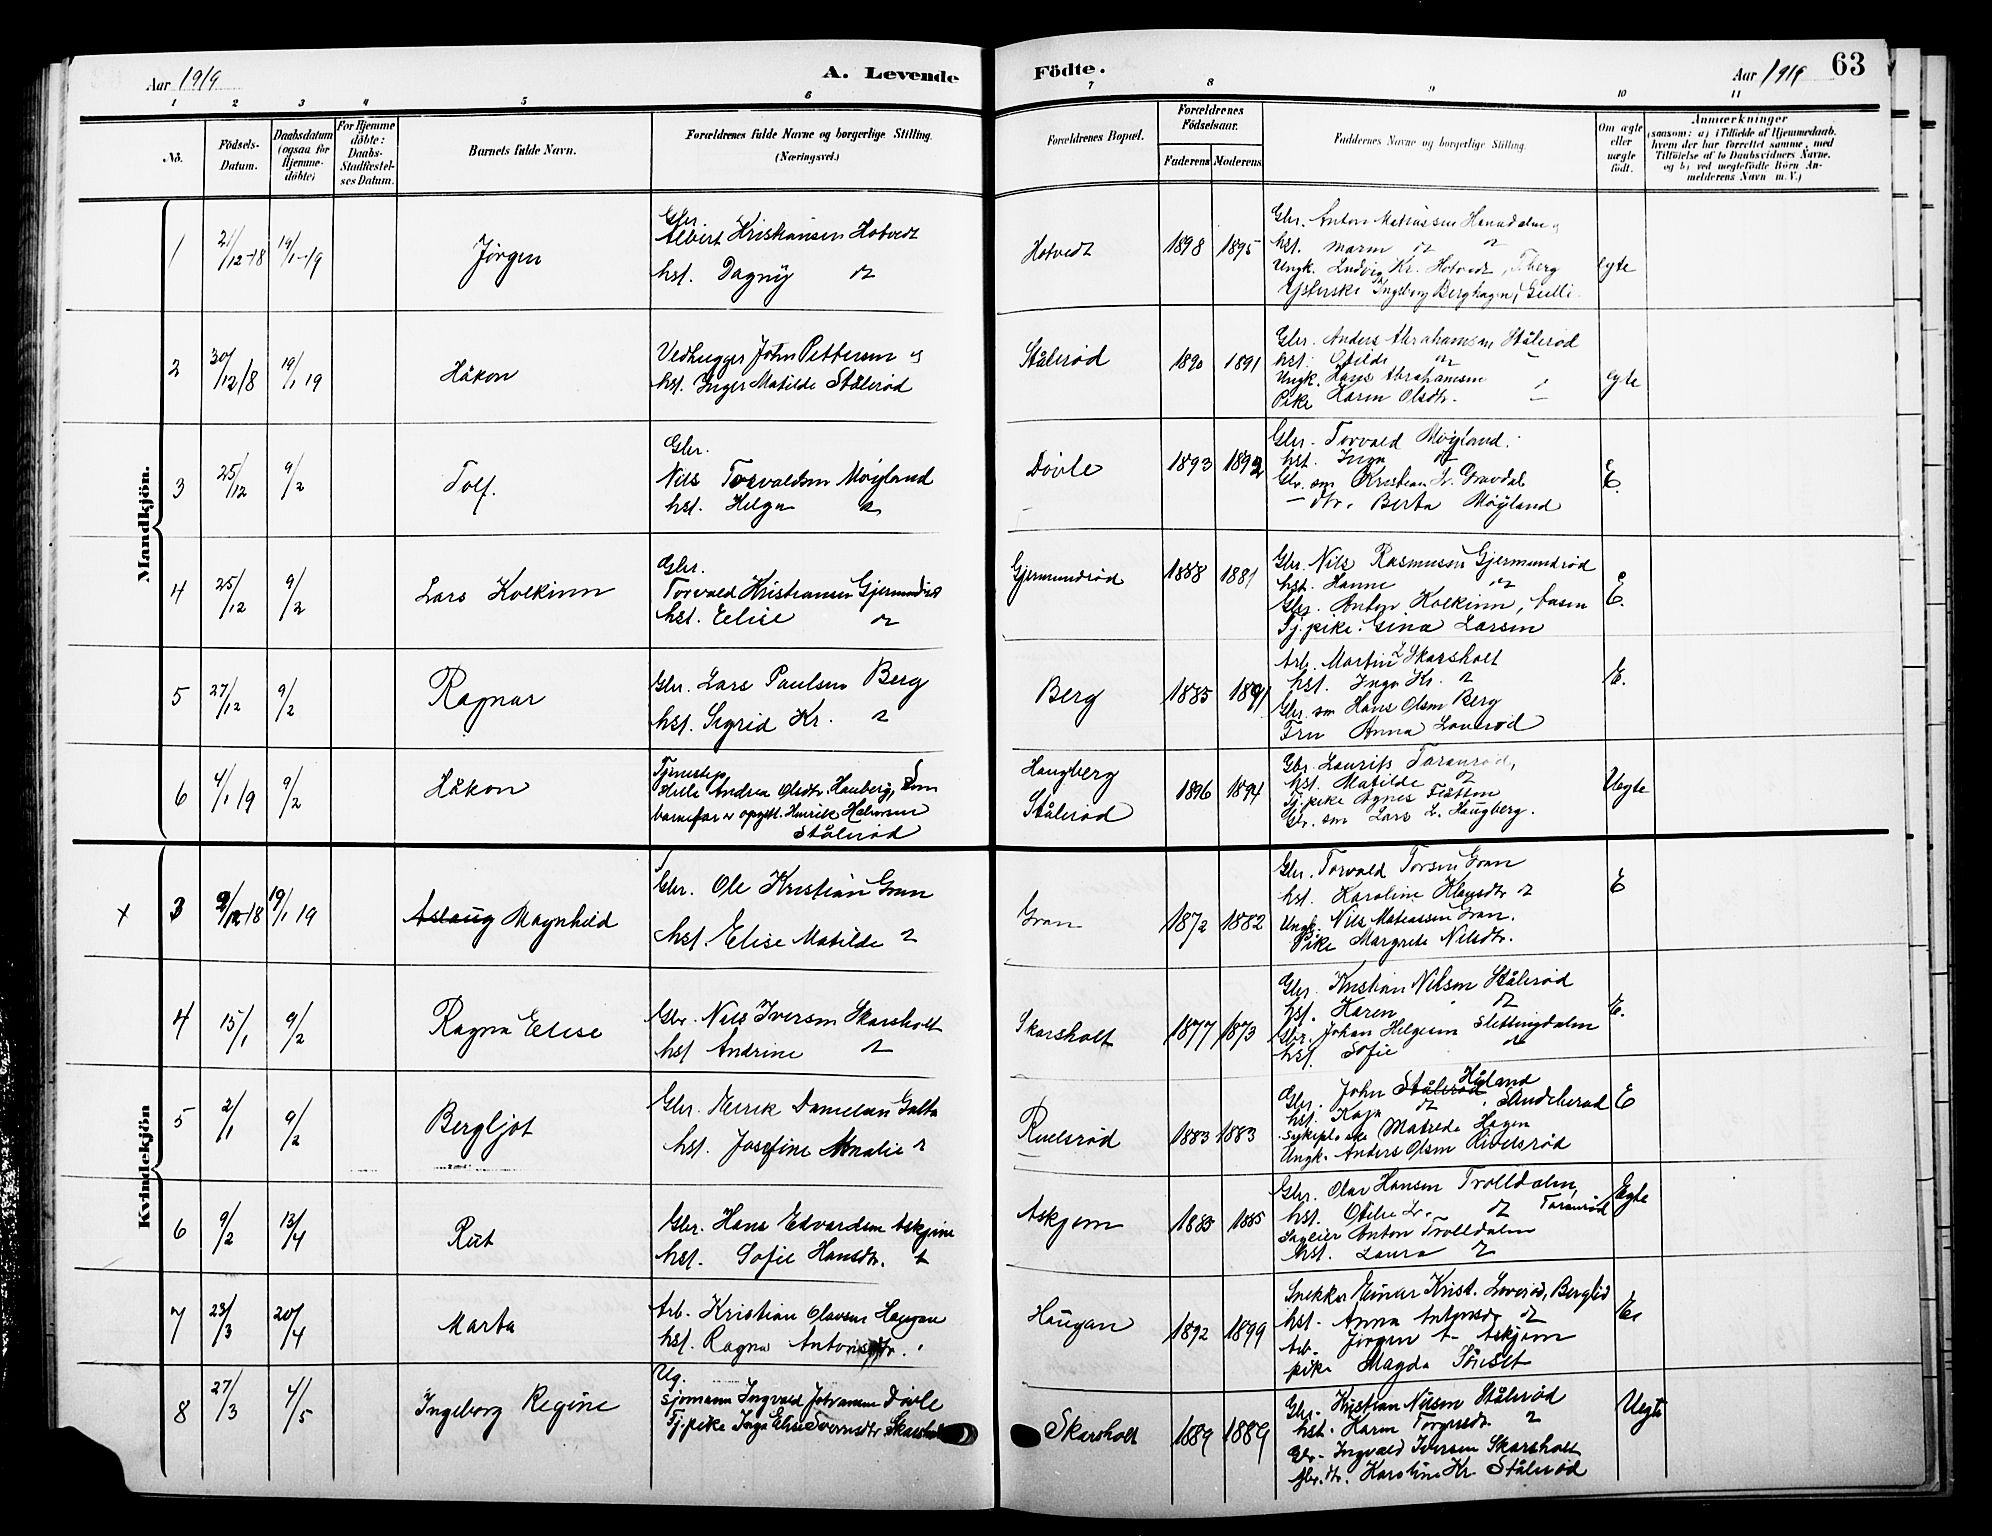 Aar 1919
A. Levende
Födte.
Aar 1919
63
1 2 3 4 5 6 7 8 9 10 11
No.
Födsels-Datum.
Daabsdatum (ogsaa for Hjemme-döbte)
For Hjemme döbte: Daabs-Stadfæstel-ses Datum.
Barnets fulde Navn.
Forældrenes fulde Navne og borgerlige Stilling.
(Næringsvei.)
Forældrenes Bopæl.
Forældrenes Födselsaar.
Faderens
Moderens
Faddernes Navne og borgerlige Stilling.
Om ægte eller uægte födt.
Anmærkninger
(saasom: a) i Tilfælde af Hjemmedaab.
hvem der har forrettet samme, med
Tilföielse af to Daabsvidners Navne.
og b) ved uægtefödte Börn An-
melderens Navn m. V.)
Mandkjön.
1 21/12-18 19/1-19 Jørgen
Gbr.
Albert Kristiansen Hotvedt
hst. Dagny do
Hotvedt 1898 1895
Gbr. Anton
hst. Maren do
Ungk. Ludvig Kr. Hotvedt,
Ingeborg Berghagen, Gulli
egte
2 30/12 18 19/1 19 Håkon
Vedhugger John Pettersen og
hst. Inger Matilde Stålerød
Stålerød 1890 1891
Gbr. Anders Abrahamsen Stålerød
hst. Otilde do
Ungk. Hans Abrahamsen
Pike Karen Olsdtr. —
egte
3 25/12 9/2 Tolf.
Gbr.
Nils Torvaldsen Møyland
hst. Helga do
Døvle 1893 1892
Gbr. Torvald Møyland.
hst. Inga do
Gbr. søn Kristian Gravdal
— dtr. Berta Møyland
E.
4 25/12 9/2 Lars Kolkinn
Gbr.
Torvald Kristiansen Gjermundrød
hst. Elise do
Gjermundrød 1888 1881
Gbr. Nils Rasmussen Gjermundrød
hst. Hanne do
Gbr. Anton Kolkinn,
Tj.pike Gina Larsen
E.
5 27/12 9/2 Ragnar
Gbr. Lars Paulsen Berg
hst. Sigrid Kr. do
Berg 1885 1891
Arb. Martin Skarsholt
hst. Inga Kr. do
Gbr. søn Hans Olsen Berg
Fru Anna Løverød
E.
6 4/1 19 9/2 Håkon
Andrea Olsdtr. Hauberg, Som
barnefar er opgit. Henrik
Stålerød
Haugberg
Stålerød
1896 1894
Gbr. Laurits Taranrød,
hst. Matilde do
Tj.pike Agnes
Gbr. søn Lars Haugberg.
Uegte
Kvindekjön
x 3 2/12-18 19/1 19 Aslaug Magnhild
Gbr. Ole Kristian Gran
hst. Elise Matilde do
Gran 1872 1882
Gbr. Torvald Torsen Gran
hst. Karoline Klausdtr do
Ungk. Nils Matiassen Gran.
Pike Margrete Nilsdtr.
E
4 15/1 9/2 Ragna Elise
Gbr. Nils Iversen Skarsholt
hst Andrine do
Skarsholt 1877 1873
Gbr. Kristian Nilsen Stålerød
hst. Karen do
Gbr. Johan Helgesen Slettingdalen
hst. Sofie do
E.
5 2/1 9/2 Bergljot
Gbr. Henrik Danielsen
hst. Josefine Amalie do
Ruelsrød 1883 1883
Gbr. John Stålerød Håland
hst. Kaja do, Andebu
Sykepleske Matrede Hagen
Ungk. Anders Olsen Rivelsrød
E
6 9/2 13/4 Rut
Gbr. Hans Edvardsen Askjem
hst. Sofie Hansdtr. do
Askjem 1885 1885
Gbr. Olav Hansen Trolldalen,
hst. Otilie do Taranrød
Sageier Anton Trolldalen
hst. Laura do
Egte
7 23/3 20/4 Marta
Arb. Kristian Olavsen Haugan
hst. Ragna Antonsdtr.
Haugan 1892 1899
Snekker Einar Krist. Løverød, Berglid
hst. Anna Antonsdtr do
Arb. Jørgen A- Askjem
pike Magda Sønset
E.
8 27/3 4/5 Ingeborg Regine
Ug.
Sjømann Ingvald Johansen Døvle
Tj.pike Inga Elise Skarsholt
Skarsholt 1889 1889
Gbr. Kristian Nilsen Stålerød
hst. Karen do
Gbr. Ingvald Iversen Skarsholt
Gbr. dtr. Karoline Kr. Stålerød
Uegte